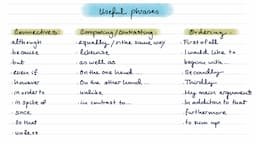 Useful phrases
Connectives
· although
· because
· but
· even if
· however
· in order to
· in spite of
· since
· so that
· unless
Comparing / contrasting
· equally / in the same way
· likewise
· as well as
· On the one hand...
· On the other hand...
· unlike
· in contrast to...
Ordering
· First of all
· I would like to
begin with...
· Secondly
· Thirdly
· My main argument
· In addition to that
· furthermore
· to sum up